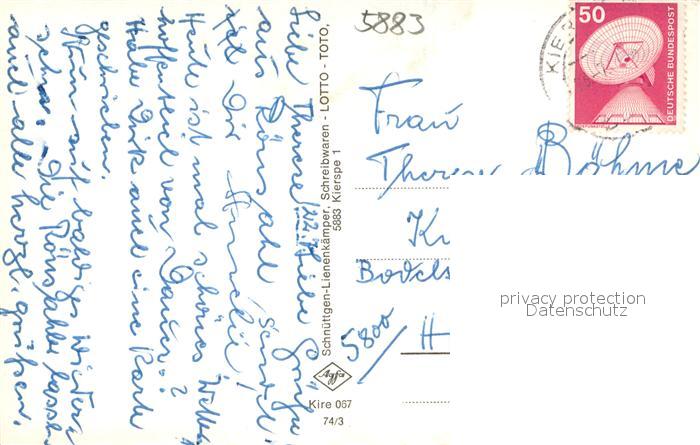 Liebe Therese! Liebe Grüße
aus Rönsahl sendet
Dir Amelie!
Heute ist mal schönes Wetter,
hoffentlich von Dauer?
Habe Dirk auch eine Karte
geschrieben.
Nun auf baldiges Wieder-
sehn. Die Rönsahler lassen
auch alle herzl. grüßen.
Schnüttgen-Lienenkämper, Schreibwaren - LOTTO - TOTO,
5883 Kierspe 1
Agfa
Kire 067
74/3
5883
50
DEUTSCHE BUNDESPOST
KIE
Frau
Therese Böhme
K
Bodels
5800/ H
privacy protection
Datenschutz